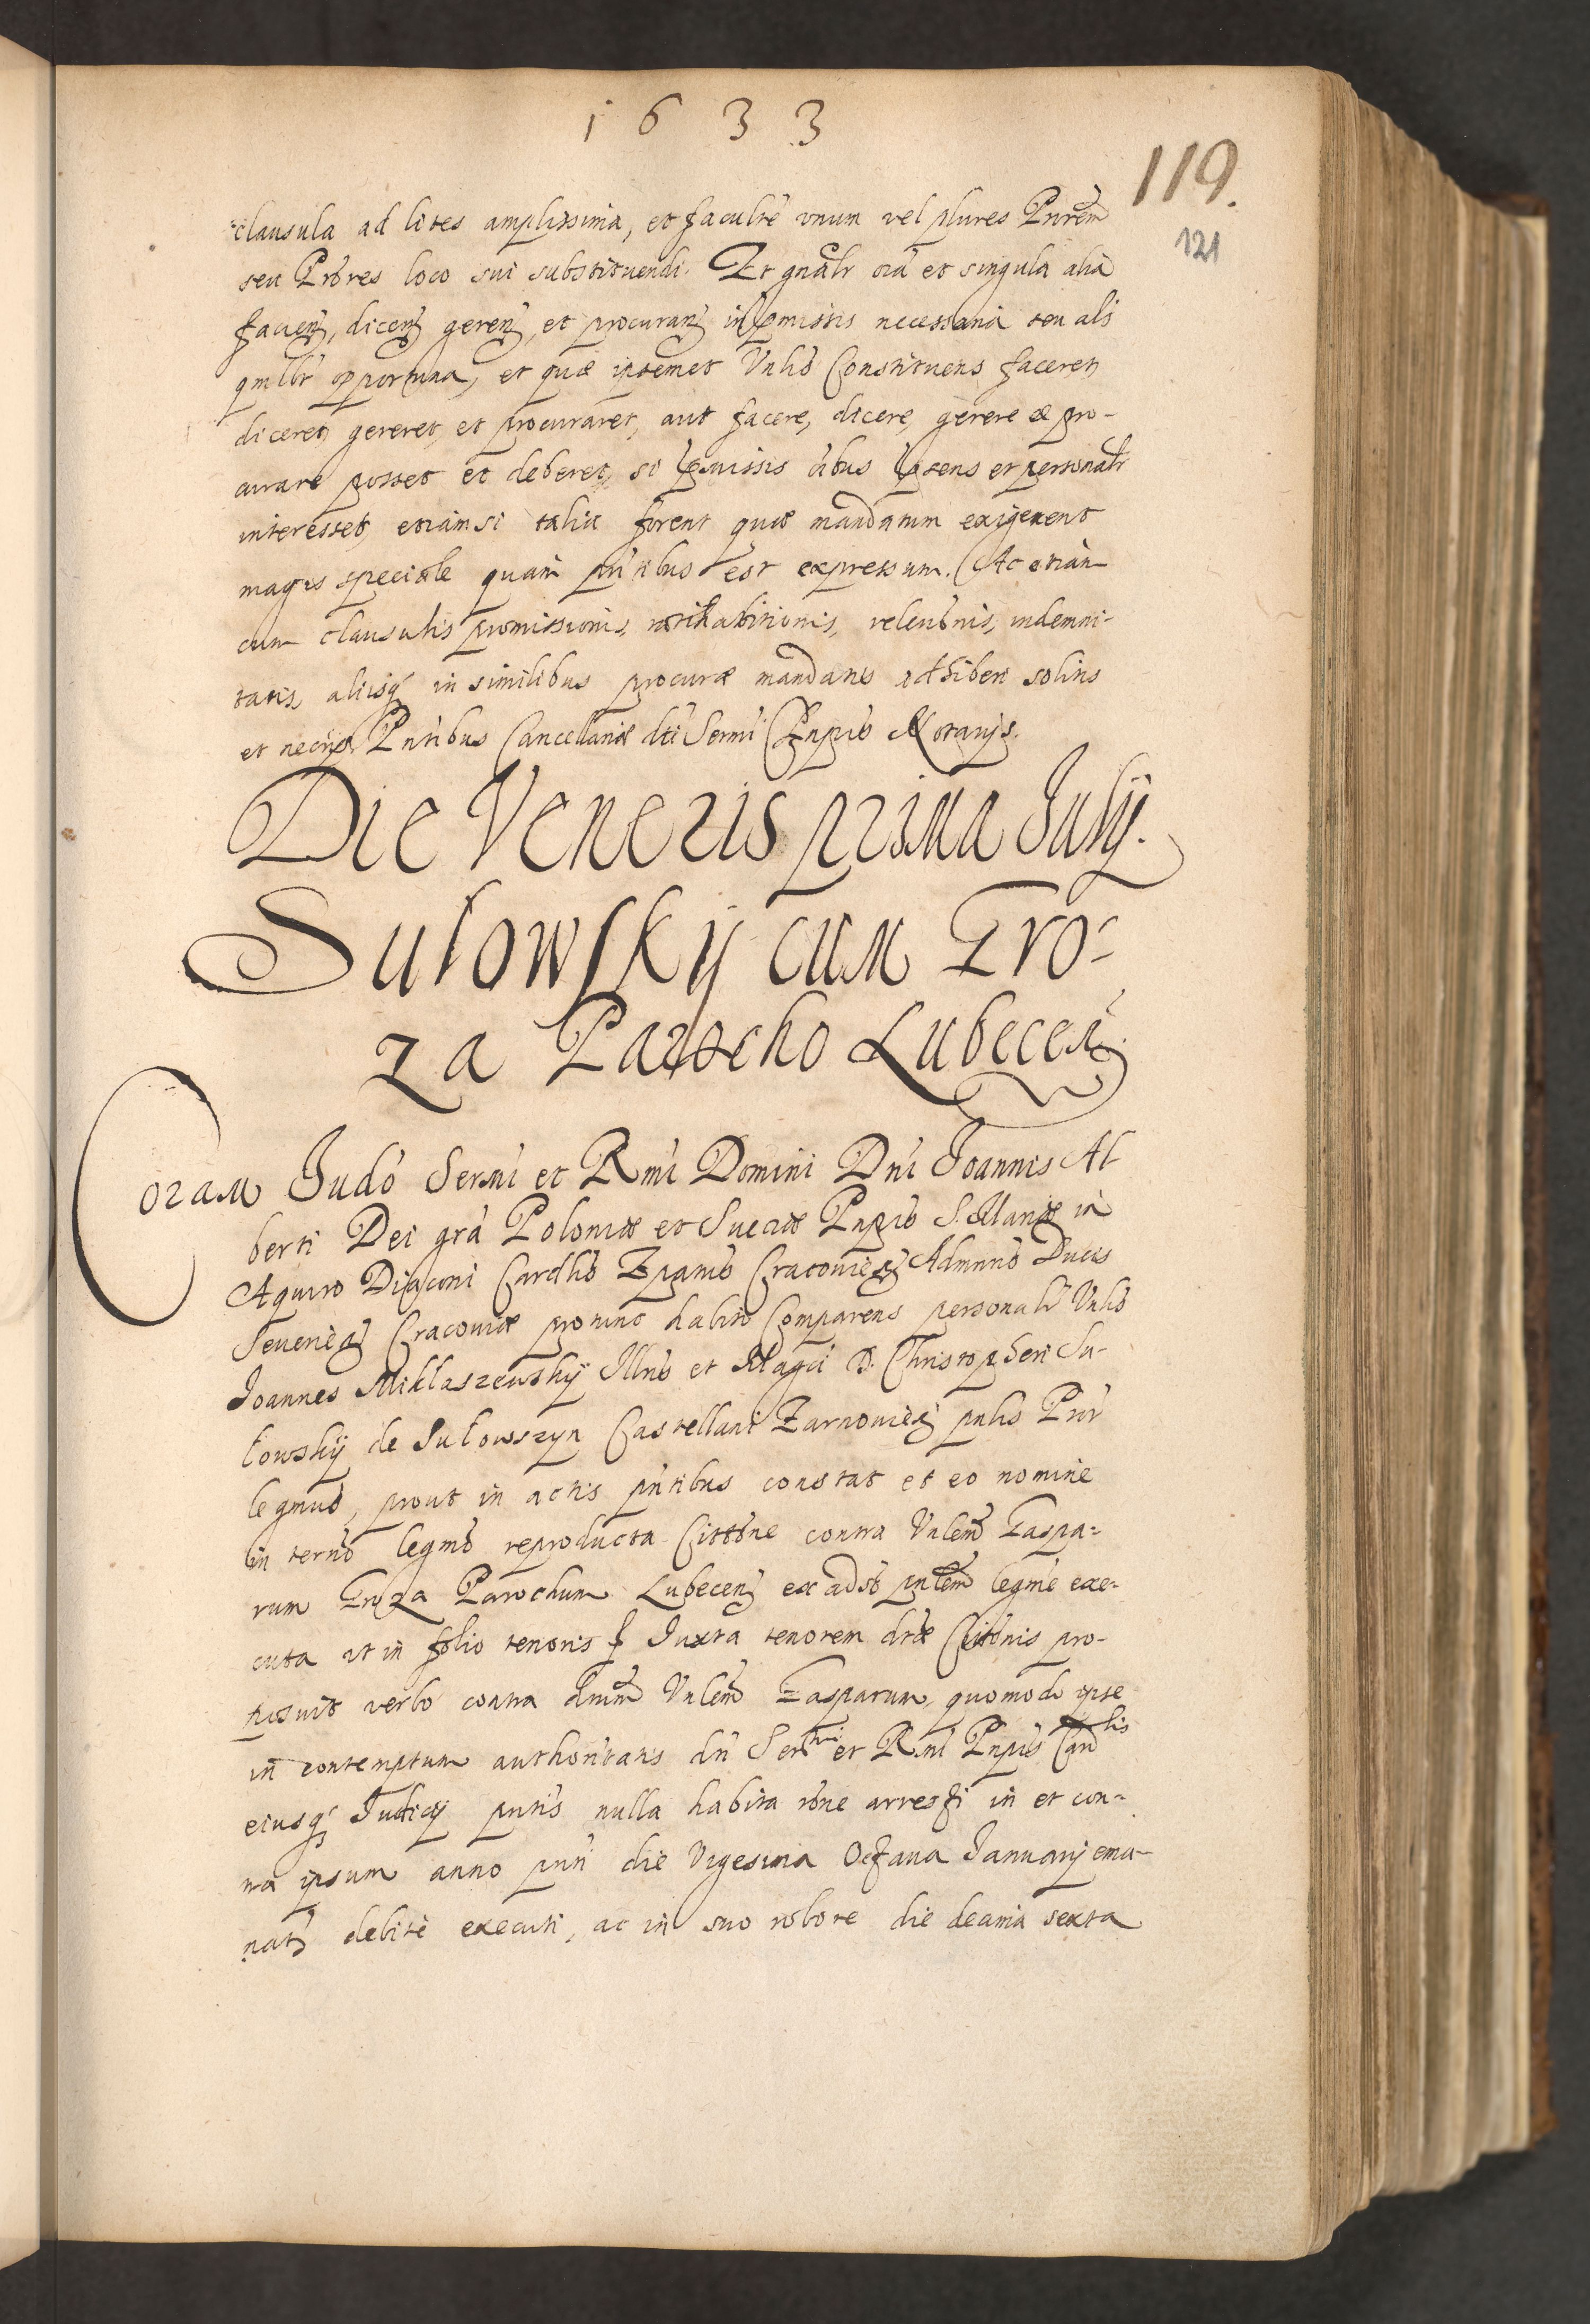 1633
119.
121
clausula ad lites amplissima, et facultē vnum vel plures Prōrem
seu Prōres loco sui substituendi. Et gnālr oīa et singula alia
faciēn, dicēn gerēn, et procurān in p̄missis necessaria seu als
qmlbt opportuna, et quæ ipsemet Vnlis Constituens faceret
diceret gereret, et procuraret, aut facere, dicere, gerere & pro-
curare posset et deberet, si p̄missis oībus p̄sens et personalr
interesset, etiamsi talia forent quæ mandatum exigerent
magis speciale quam pn̄tibus est expressum. Ac etiam
cum clausulis promissionis, ratihabitionis, releuōnis, indemni-
tatis, alijsq in similibus procuræ mandatis adhiberi solitis
et necijs Pn̄tibus Cancellariæ dti Sermi Pnpis Notarijs.
Die Veneris prima Julij.
Sułowskij cum Gro-
za Parocho Lubecen.
Coram Judō Sermi et Rmi Domini Dni Joannis Al-
berti Dei grā Poloniæ et Sueciæ Pnpis S. Mariæ in
Aquiro Diaconi Cardlis Epatus Cracovień Admnris Ducis
Severień Cracoviæ pro tunc habito Comparens personalr Vnlis
Joannes Miklaszewskij Illris et Magci D. Christopheri Su-
łowskij de Sułowszyn Castellani Żarnovień pnlis Prōr
legmus, prout in actis pn̄tibus constat et eo nomine
in termō legmō reproducta Cittōne contra Vnlem Gaspa-
rum Groza Parochum Lubeceń ex adso pn̄tem legmē exe-
cuta ut in folio tenoris f Juxta tenorem dtæ Citōnis pro-
posuit verbo contra dnum Vnlem Gasparum, quomodo ipse
in contemptum authoritatis dti Sermi et Rmi Pnpis Cardlis
eiusq Judicij pntis nulla habita rōne arresti in et con-
tra ipsum anno pnti die Vigesima Octaua Januarij ema-
nati debitè executi, ac in suo robore die decima sexta